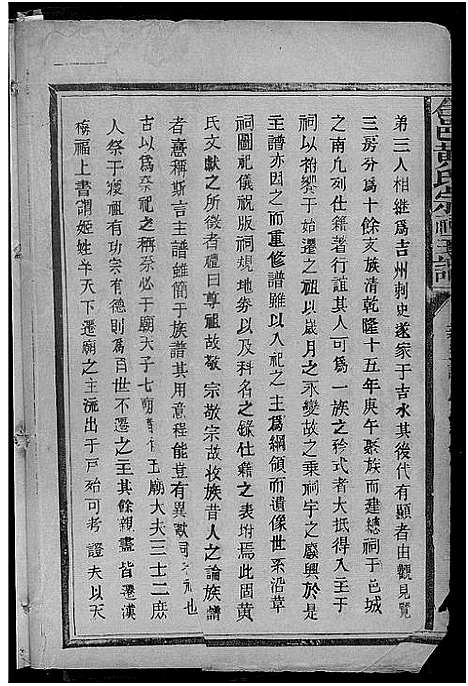 合邑黄氏宗祠主譜
弟三人相継為吉州刺史遂家于吉水其後代有由觀見覽
三房分為十餘支族清乾隆十五年庚午聚族而建總祠于邑城
之南凡列仕籍著行誼其人可為一族之矜式者大抵得入主于
祠以祔饗于始遷之祖以歲月之永變故之乗祠宇之廢興於
主譜亦因之而重修譜雖以入祀之主為綱領而遺像世系沿革
祠圖祀儀祝版祠規地券以及科名之錄仕籍之表坿焉此固黄
氏文獻之所徵者禮曰尊祖故敬宗敬宗故收族昔人之論族譜
者意稱斯言主譜雖簡于族譜其用意程能豈有異歟 祀也
古以為祭祀之称祭必于廟天子七廟 五廟大夫三士二庶
人祭于寢祖有功宗有德則為百世不遷之主其餘親盡皆遷漢
梅福上書謂姬姓半天下遷廟之主流出于戸殆可考證夫以天